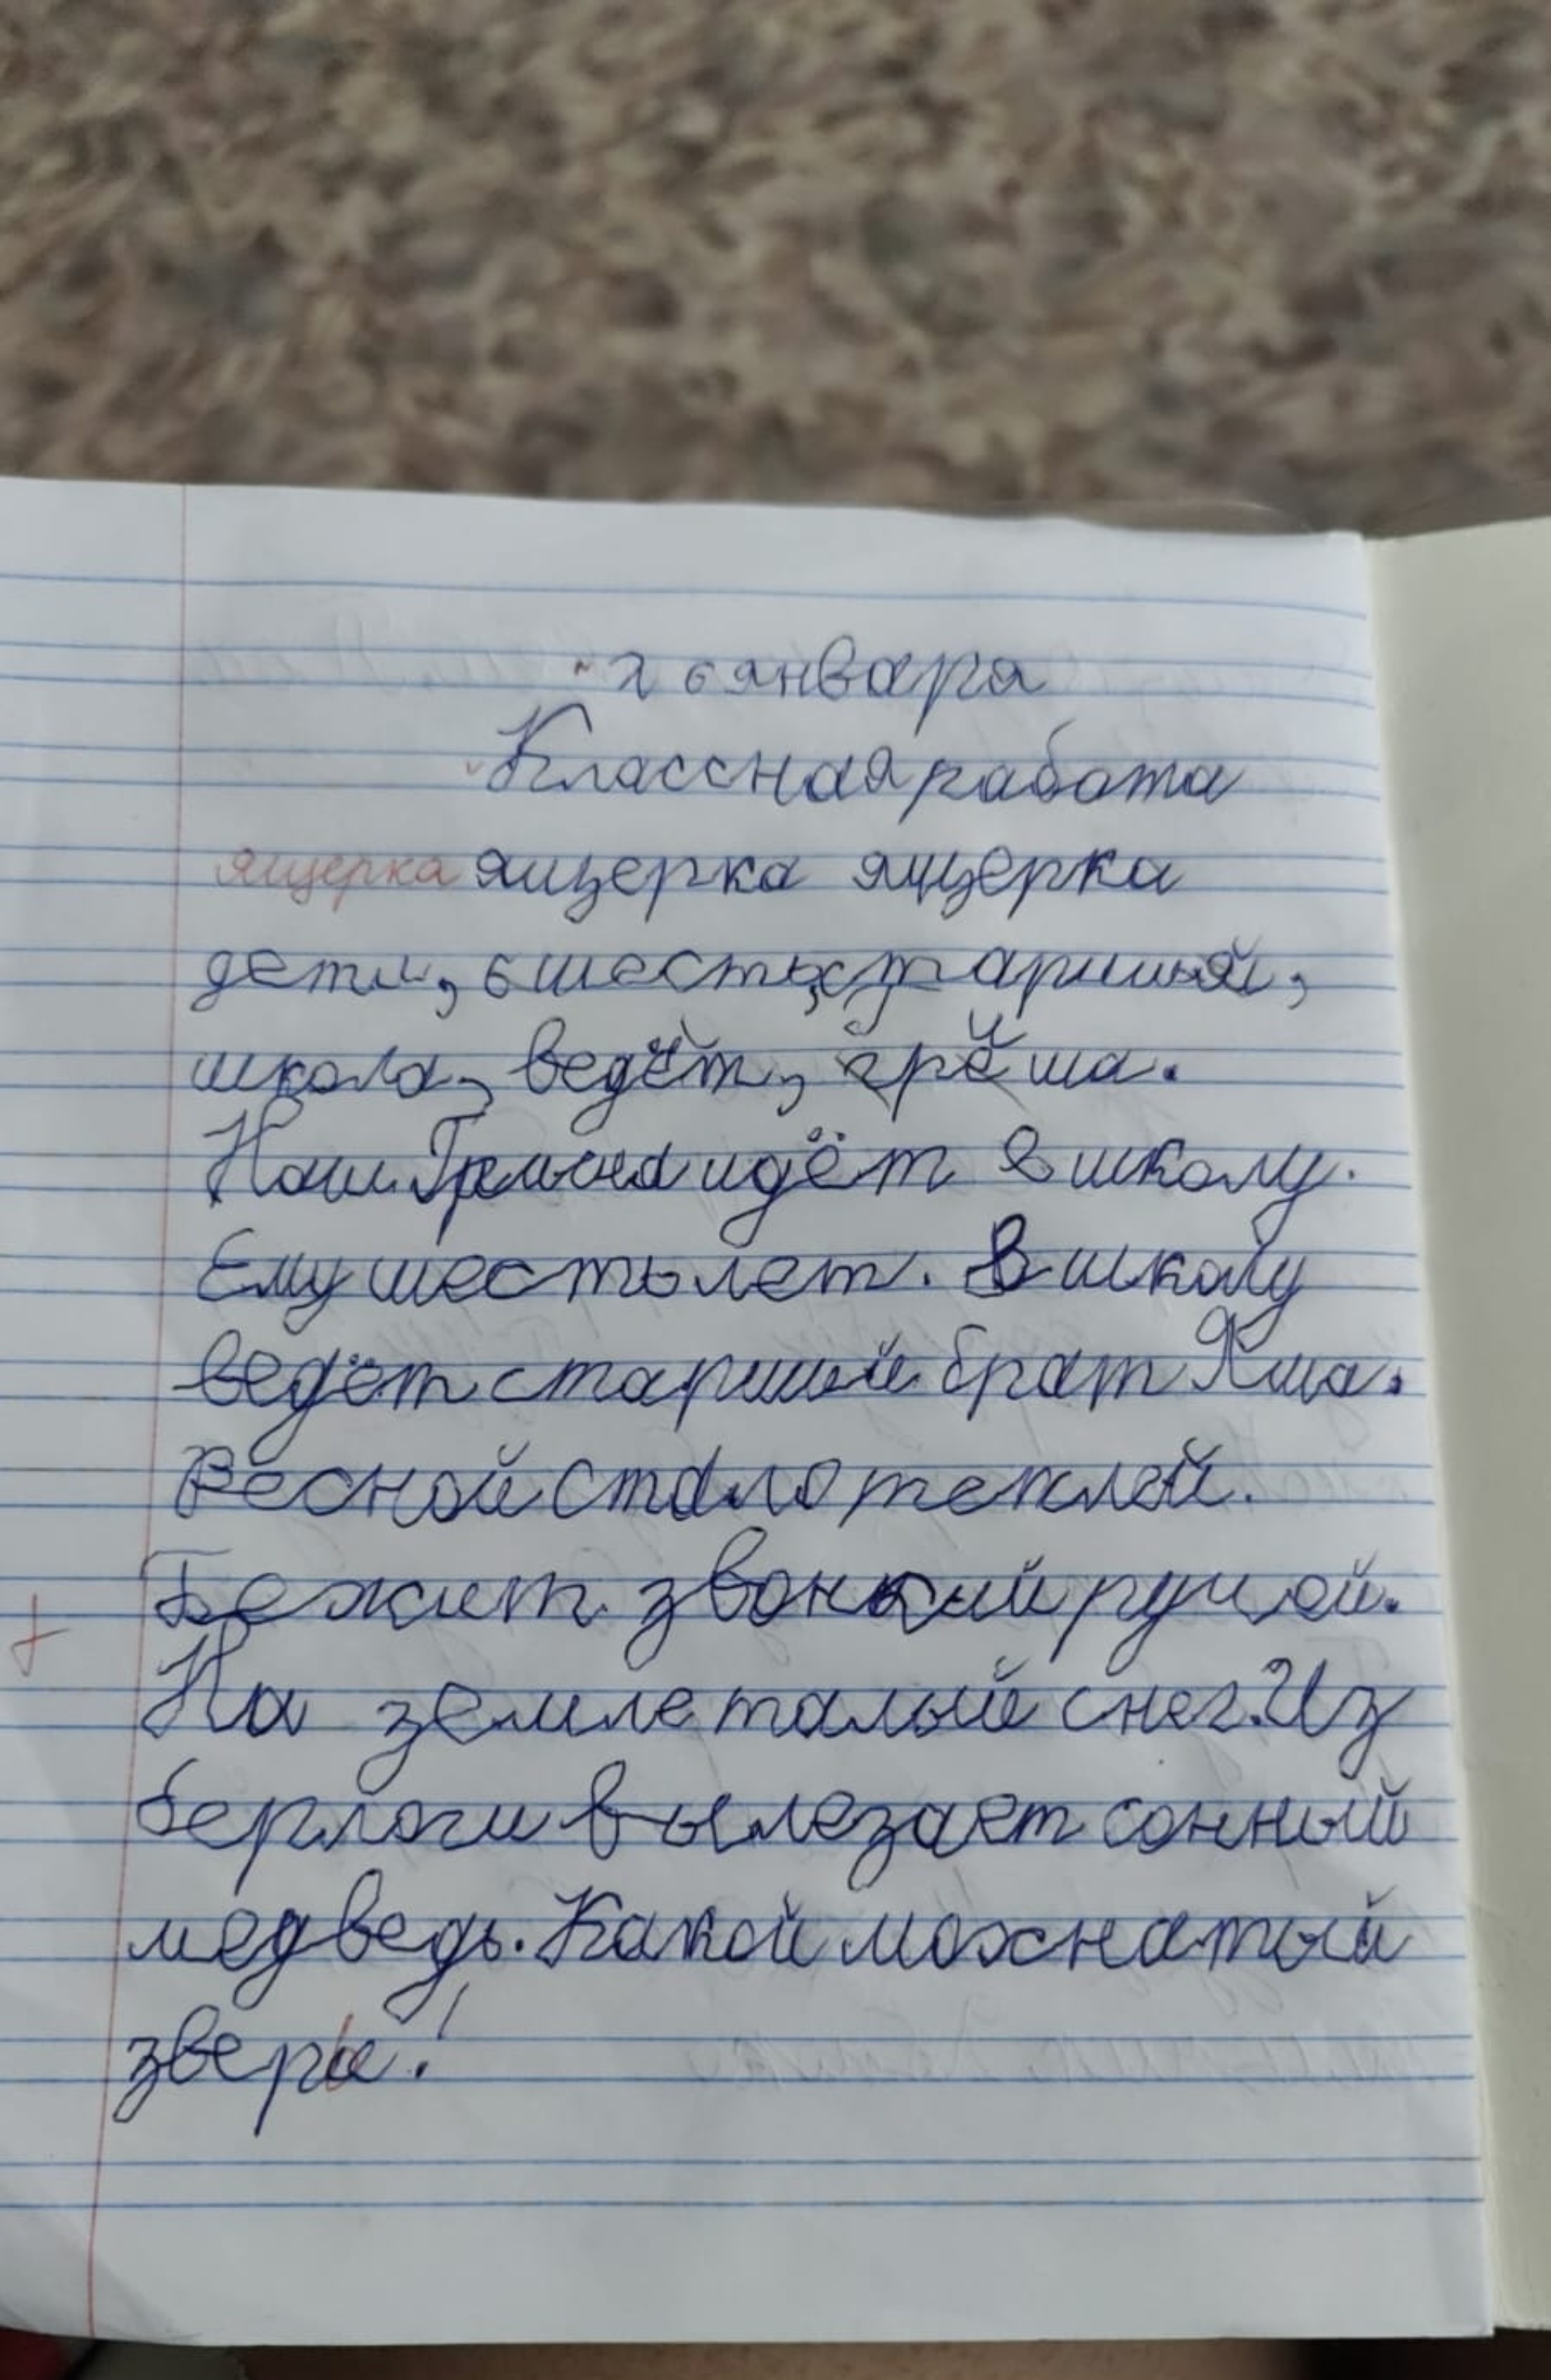 26 января
Классная работа
ящерка ящерка ящерка
дети, шесть, старший,
школа, ведёт, гриша.
Наш Гриша идёт в школу.
Ему шесть лет. В школу
ведёт старший брат Яша.
Весной стало теплей.
Бежит звонкий ручей.
На земле талый снег. Из
берлоги вылезает сонный
медведь. Какой мохнатый
зверь!